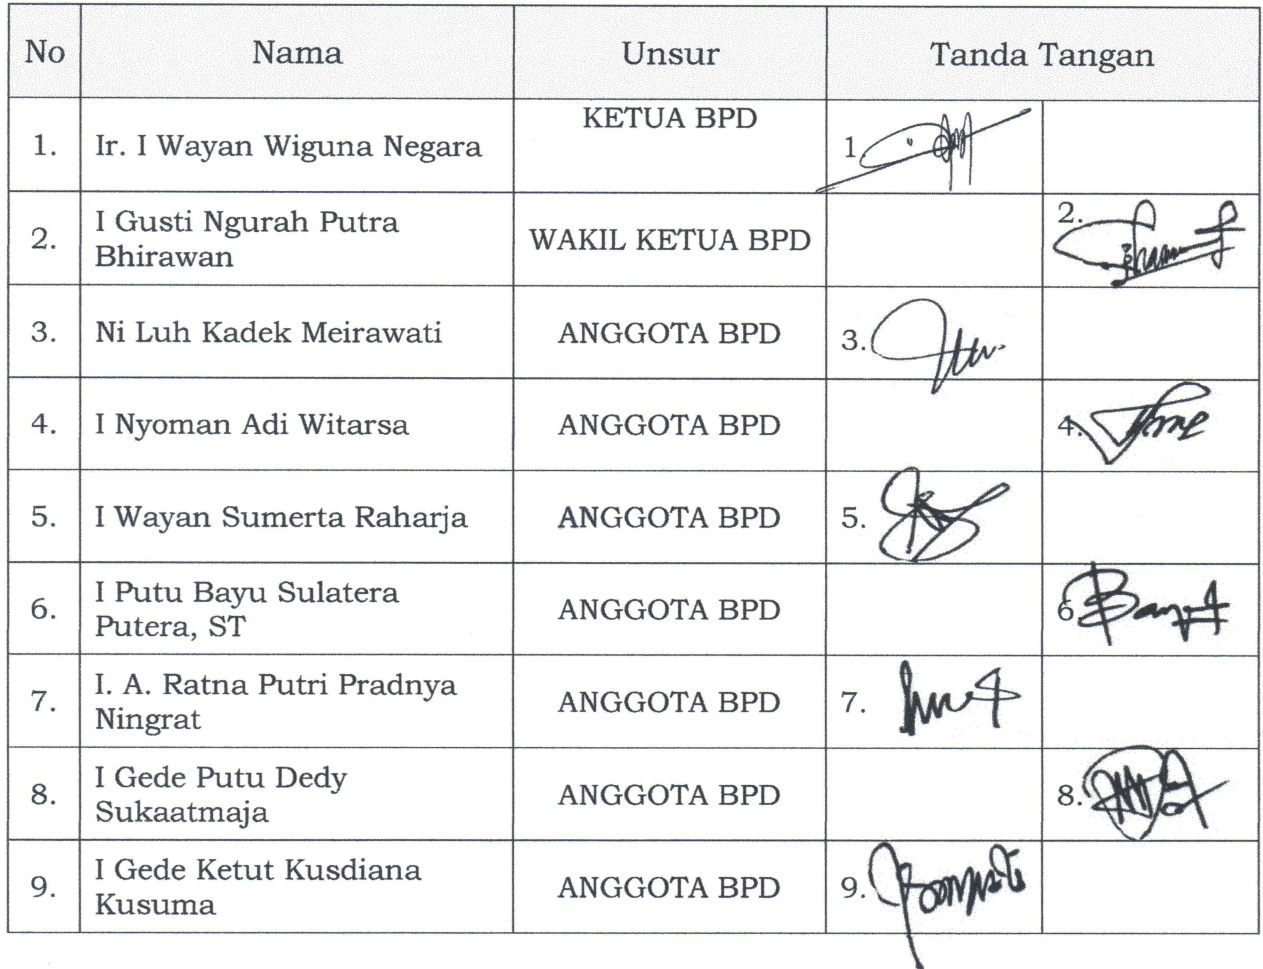 No Nama Unsur Tanda Tangan
1. Ir. I Wayan Wiguna Negara KETUA BPD 1.
2. I Gusti Ngurah Putra
Bhirawan WAKIL KETUA BPD 2.
3. Ni Luh Kadek Meirawati ANGGOTA BPD 3.
4. I Nyoman Adi Witarsa ANGGOTA BPD 4.
5. I Wayan Sumerta Raharja ANGGOTA BPD 5.
6. I Putu Bayu Sulatera
Putera, ST ANGGOTA BPD 6
7. I. A. Ratna Putri Pradnya
Ningrat ANGGOTA BPD 7.
8. I Gede Putu Dedy
Sukaatmaja ANGGOTA BPD 8.
9. I Gede Ketut Kusdiana
Kusuma ANGGOTA BPD 9.